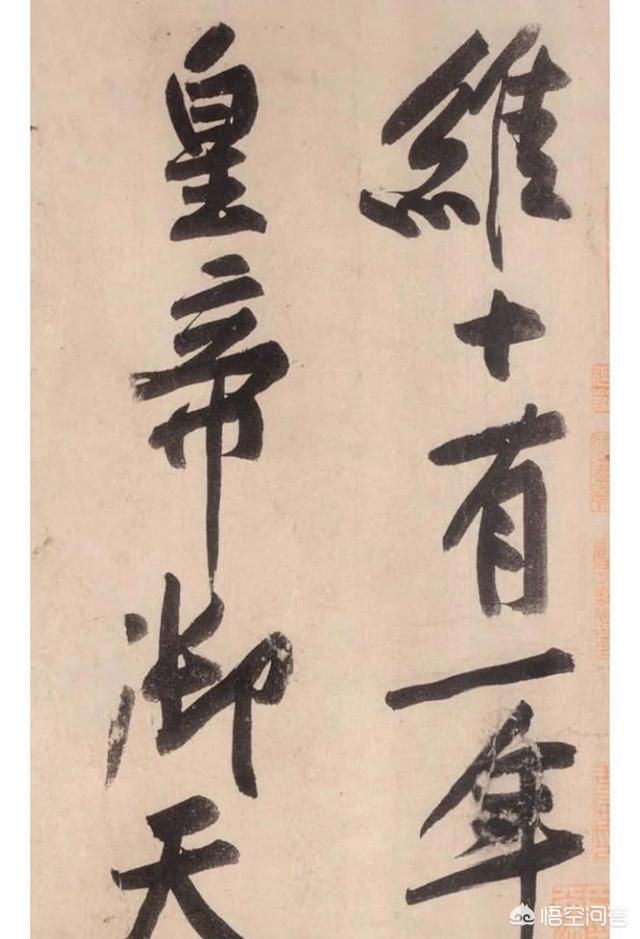 維十有一年
皇帝御天
悟空问答